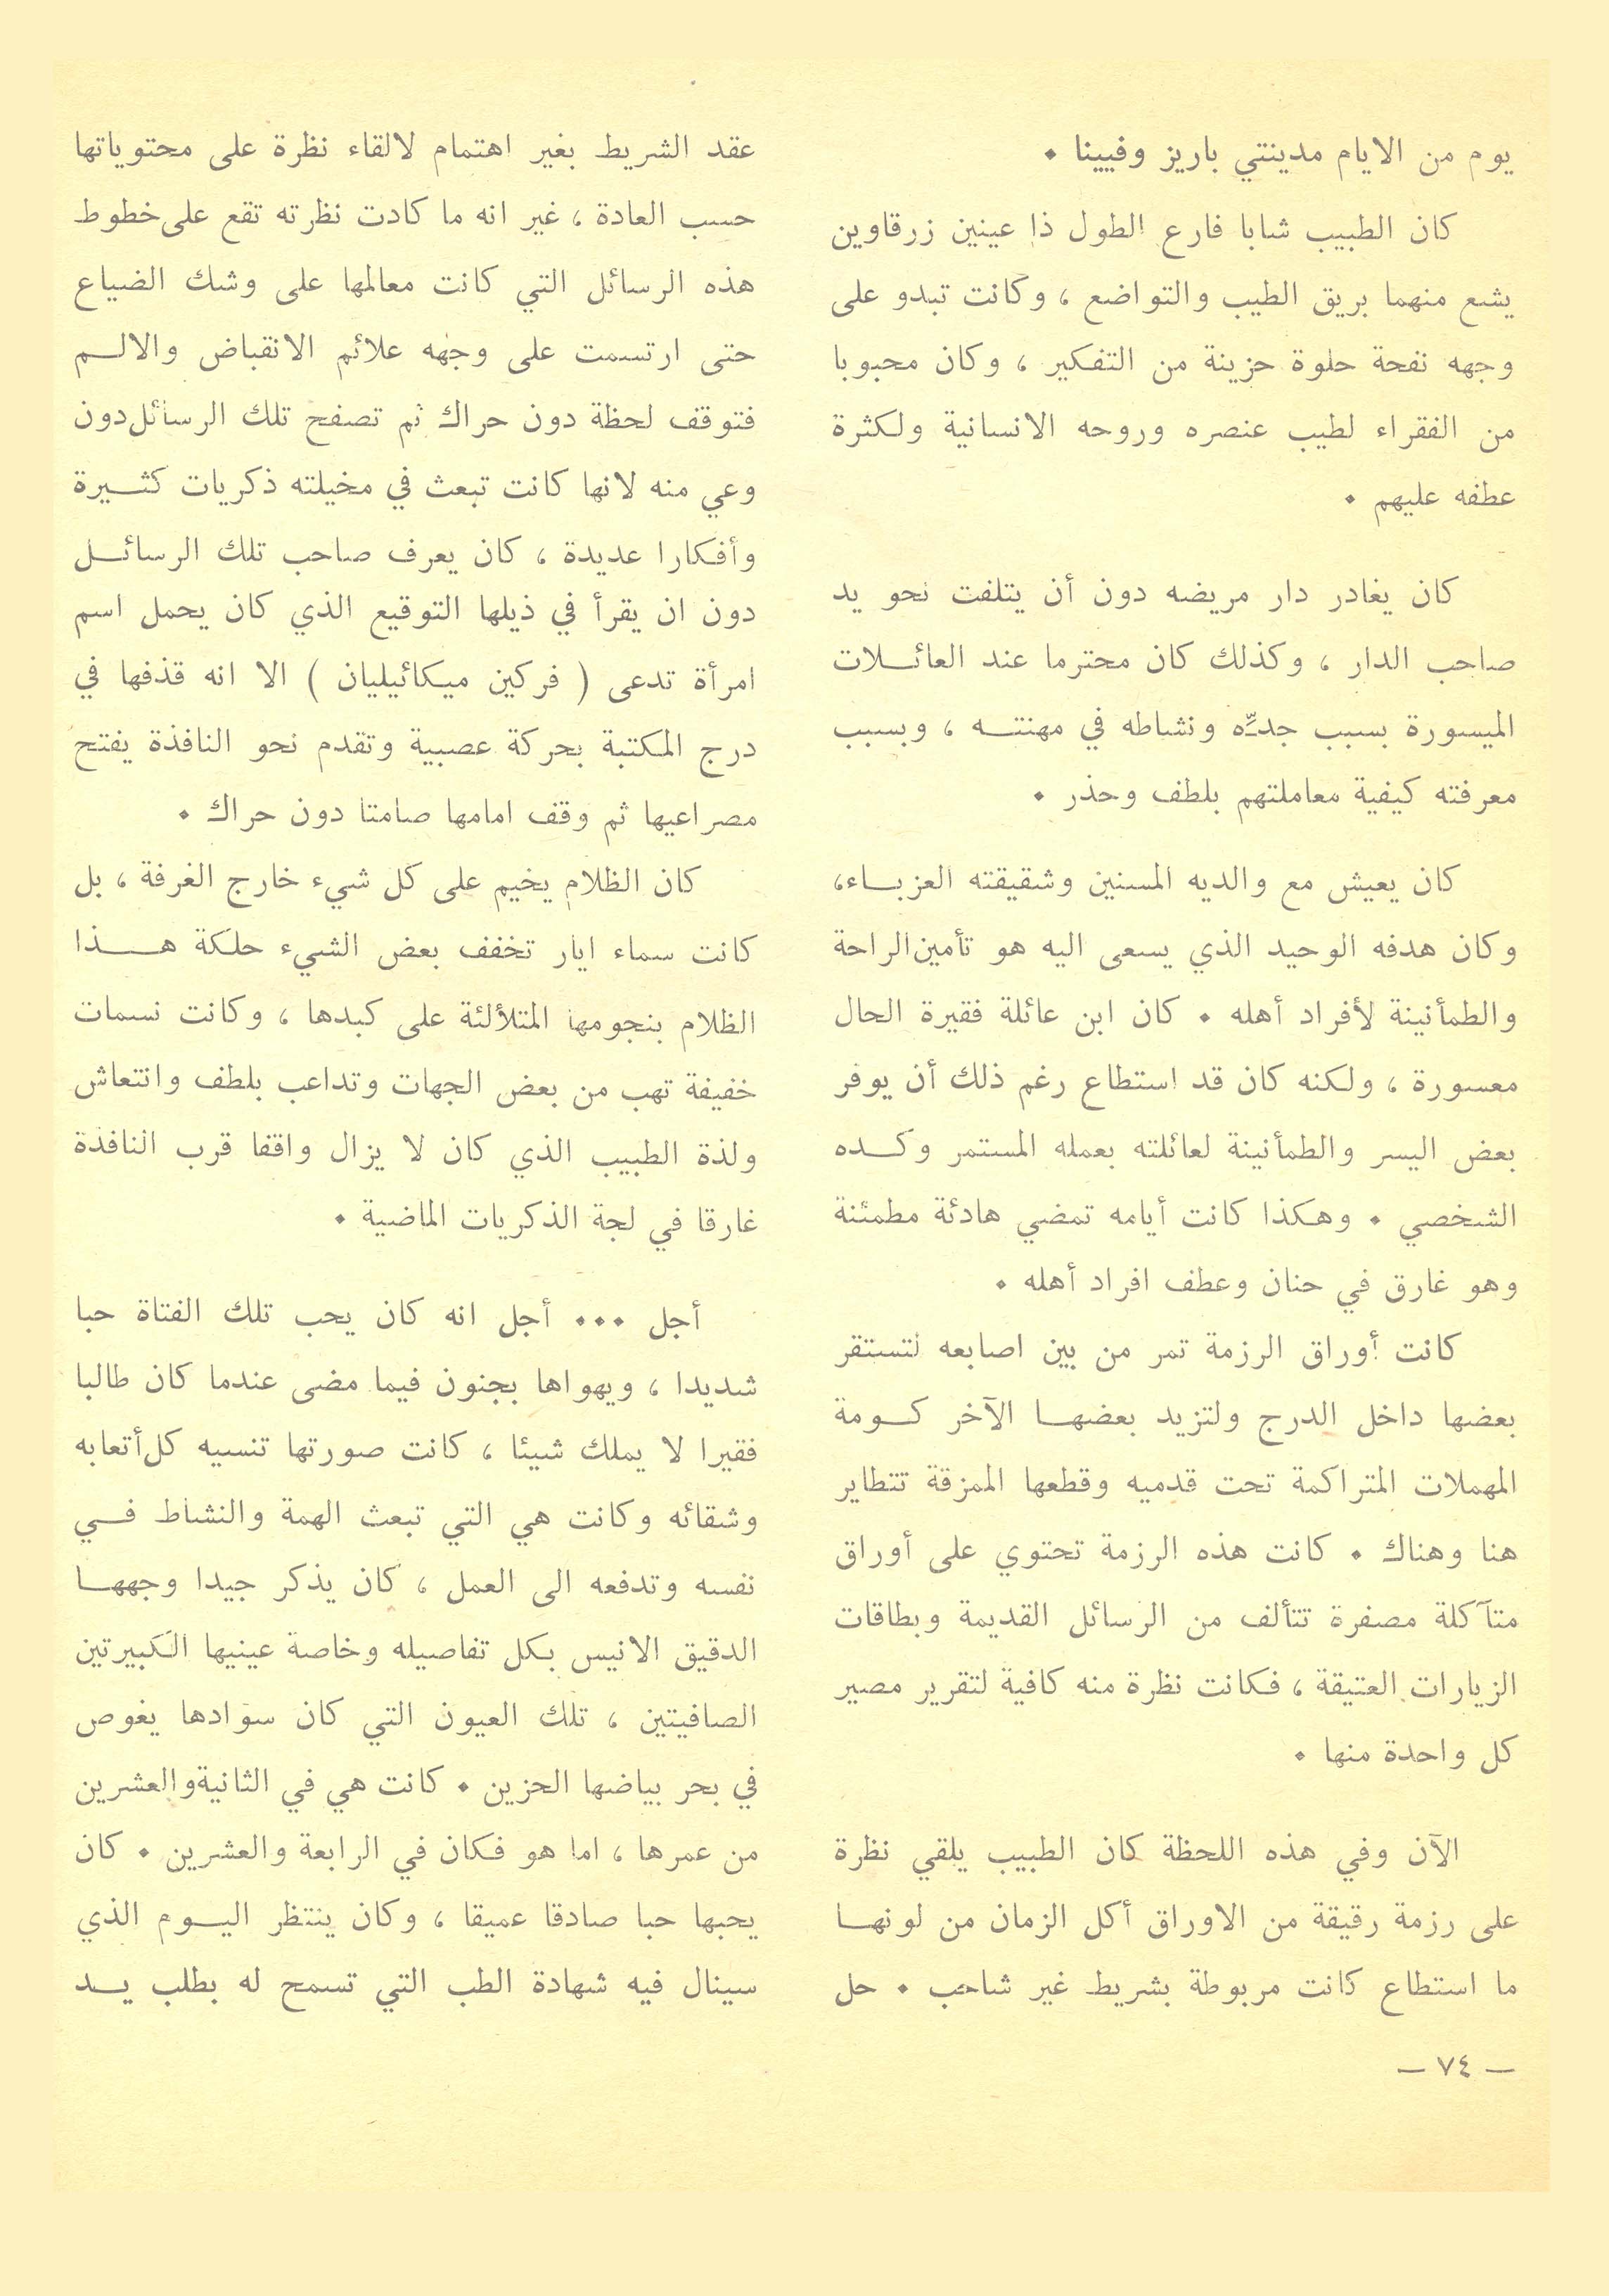 يوم من الايام مدينتي باريز وفيينا .
كان الطبيب شابا فارع الطول ذا عينين زرقاوين
يشع منهما بريق الطيب والتواضع ، وكانت تبدو على
وجهه نفحة حلوة حزينة من التفكير ، وكان محبوبا
من الفقراء لطيب عنصره وروحه الانسانية ولكثرة
عطفه عليهم .
كان يغادر دار مريضه دون أن يتلفت نحو يد
صاحب الدار ، وكذلك كان محترما عند العائلات
الميسورة بسبب جدّه ونشاطه في مهنته ، وبسبب
معرفته كيفية معاملتهم بلطف وحذر .
كان يعيش مع والديه المسنين وشقيقته العزباء،
وكان هدفه الوحيد الذي يسعى اليه هو تأمين الراحة
والطمأنينة لأفراد أهله . كان ابن عائلة فقيرة الحال
معسورة ، ولكنه كان قد استطاع رغم ذلك أن يوفر
بعض اليسر والطمأنينة لعائلته بعمله المستمر وكده
الشخصي . وهكذا كانت أيامه تمضي هادئة مطمئنة
وهو غارق في حنان وعطف افراد أهله .
كانت أوراق الرزمة تمر من بين اصابعه لتستقر
بعضها داخل الدرج ولتزيد بعضها الآخر كومة
المهملات المتراكمة تحت قدميه وقطعها الممزقة تتطاير
هنا وهناك . كانت هذه الرزمة تحتوي على أوراق
متآكلة مصفرة تتألف من الرسائل القديمة وبطاقات
الزيارات العتيقة ، فكانت نظرة منه كافية لتقرير مصير
كل واحدة منها .
الآن وفي هذه اللحظة كان الطبيب يلقي نظرة
على رزمة رقيقة من الاوراق أكل الزمان من لونها
ما استطاع كانت مربوطة بشريط غير شاحب . حل
عقد الشريط بغير اهتمام لالقاء نظرة على محتوياتها
حسب العادة ، غير انه ما كادت نظرته تقع على خطوط
هذه الرسائل التي كانت معالمها على وشك الضياع
حتى ارتسمت على وجهه علائم الانقباض والالم
فتوقف لحظة دون حراك ثم تصفح تلك الرسائل دون
وعي منه لانها كانت تبعث في مخيلته ذكريات كثيرة
وأفكارا عديدة ، كان يعرف صاحب تلك الرسائل
دون ان يقرأ في ذيلها التوقيع الذي كان يحمل اسم
امرأة تدعى ( فركين ميكائيليان ) الا انه قذفها في
درج المكتبة بحركة عصبية وتقدم نحو النافذة يفتح
مصراعيها ثم وقف امامها صامتا دون حراك .
كان الظلام يخيم على كل شيء خارج الغرفة ، بل
كانت سماء ايار تخفف بعض الشيء حلكة هذا
الظلام بنجومها المتلألئة على كبدها ، وكانت نسمات
خفيفة تهب من بعض الجهات وتداعب بلطف وانتعاش
ولذة الطبيب الذي كان لا يزال واقفا قرب النافذة
غارقا في لجة الذكريات الماضية .
أجل ... أجل انه كان يحب تلك الفتاة حبا
شديدا ، ويهواها بجنون فيما مضى عندما كان طالبا
فقيرا لا يملك شيئا ، كانت صورتها تنسيه كل أتعابه
وشقائه وكانت هي التي تبعث الهمة والنشاط في
نفسه وتدفعه الى العمل ، كان يذكر جيدا وجهها
الدقيق الانيس بكل تفاصيله وخاصة عينيها الكبيرتين
الصافيتين ، تلك العيون التي كان سوادها يغوص
في بحر بياضها الحزين . كانت هي في الثانية والعشرين
من عمرها ، اما هو فكان في الرابعة والعشرين . كان
يحبها حبا صادقا عميقا ، وكان ينتظر اليوم الذي
سينال فيه شهادة الطب التي تسمح له بطلب يد
— ٧٤ —